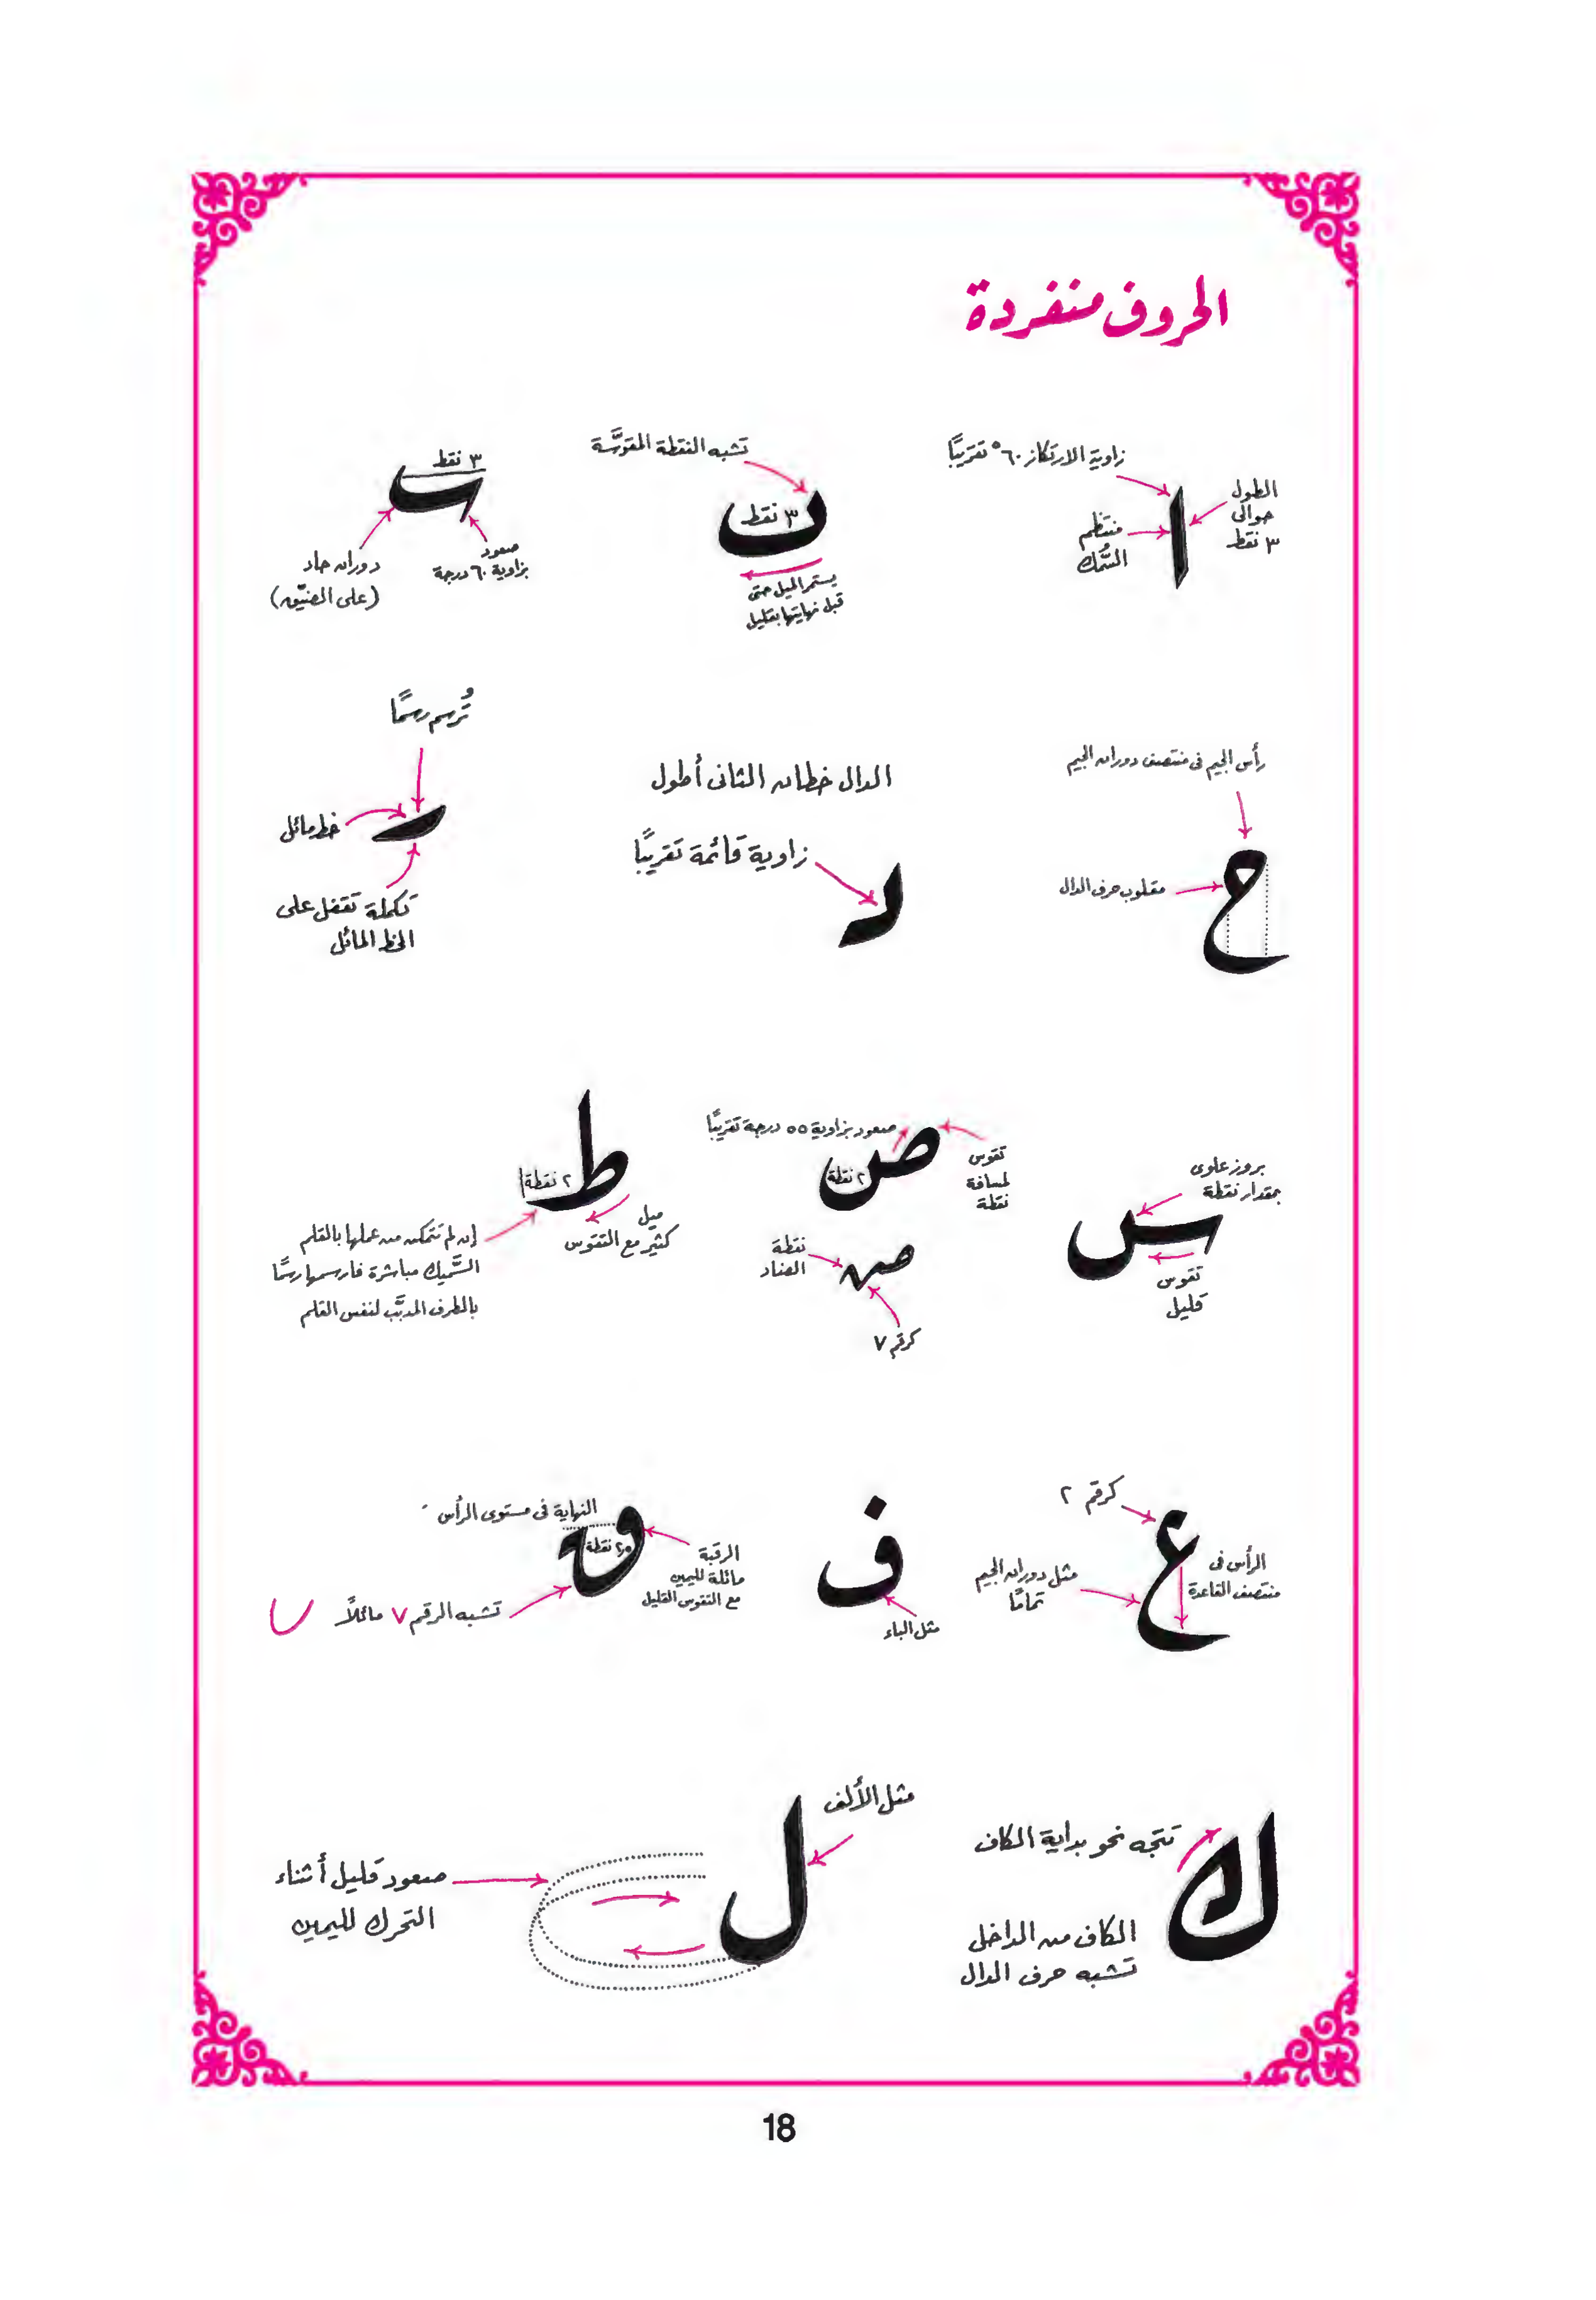 الحروف منفردة
زاوية الارتكاز ٦٠° تقريبًا
الطول
حوالى
٣ نقط
منتظم
السُّمك
ا
تشبه النقطة المقوسَّة
٣ نقط
يستمر الميل حتى
قبل نهايتها بقليل
٣ نقط
صعود
بزاوية ٦٠ درجة
دوران حاد
(على الضيّق)
رأس الجيم فى منتصف دوران الجيم
مقلوب حرف الدال
ح
الدال خطان الثانى أطول
زاوية قائمة تقريبًا
د
تُرسم رسمًا
خط مائل
ر
تكملة تقفل على
الخط المائل
بروز علوى
بمقدار نقطة
س
تقوس
قليل
صعود بزاوية ٥٥ درجة تقريبًا
تقوس
لمسافة
نقطة
ص
٢ نقطة
نقطة
الضاد
كرقم ٧
ط
٢ نقطة
ميل
كثير مع التقوس
إن لم تتمكن من عملها بالقلم
السَّميك مباشرة فارسمها رسمًا
بالطرف المدبَّب لنفس القلم
كرقم ٢
ع
الرأس فى
منتصف القاعدة
مثل دوران الجيم
تمامًا
ف
مثل الباء
النهاية فى مستوى الرأس
ق
٢,٥ نقطة
الرقبة
مائلة لليمين
مع التقوس القليل
تشبه الرقم ٧ مائلاً
تتجه نحو بداية الكاف
ك
الكاف من الداخل
تشبه حرف الدال
مثل الألف
ل
صعود قليل أثناء
التحرك لليمين
18